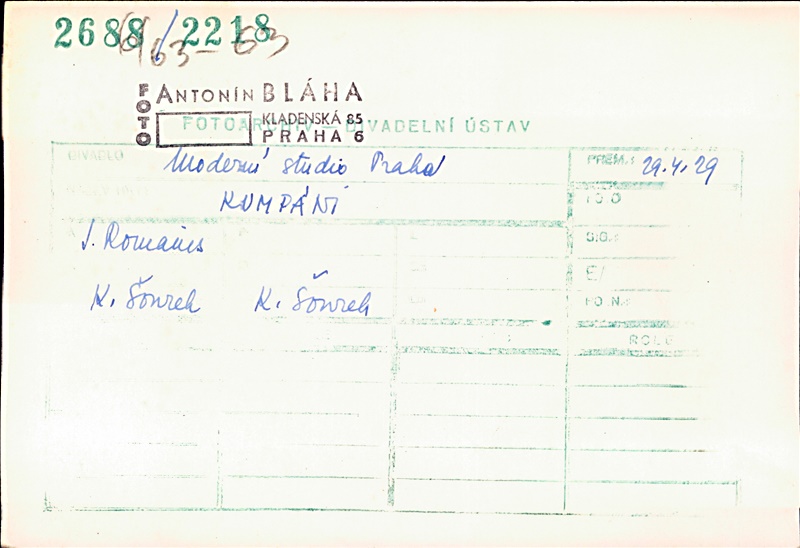 2688/2218
63-63
FOTO ANTONÍN BLÁHA
KLADENSKÁ 85
PRAHA 6
FOTOARCHIV - DIVADELNÍ ÚSTAV
DIVADLO Moderní studio Praha PREM.: 29.4.29
KUMPÁNI FOTO
J. Romains SIG.:
E/
K. Šourek K. Šourek FO N.:
ROLE